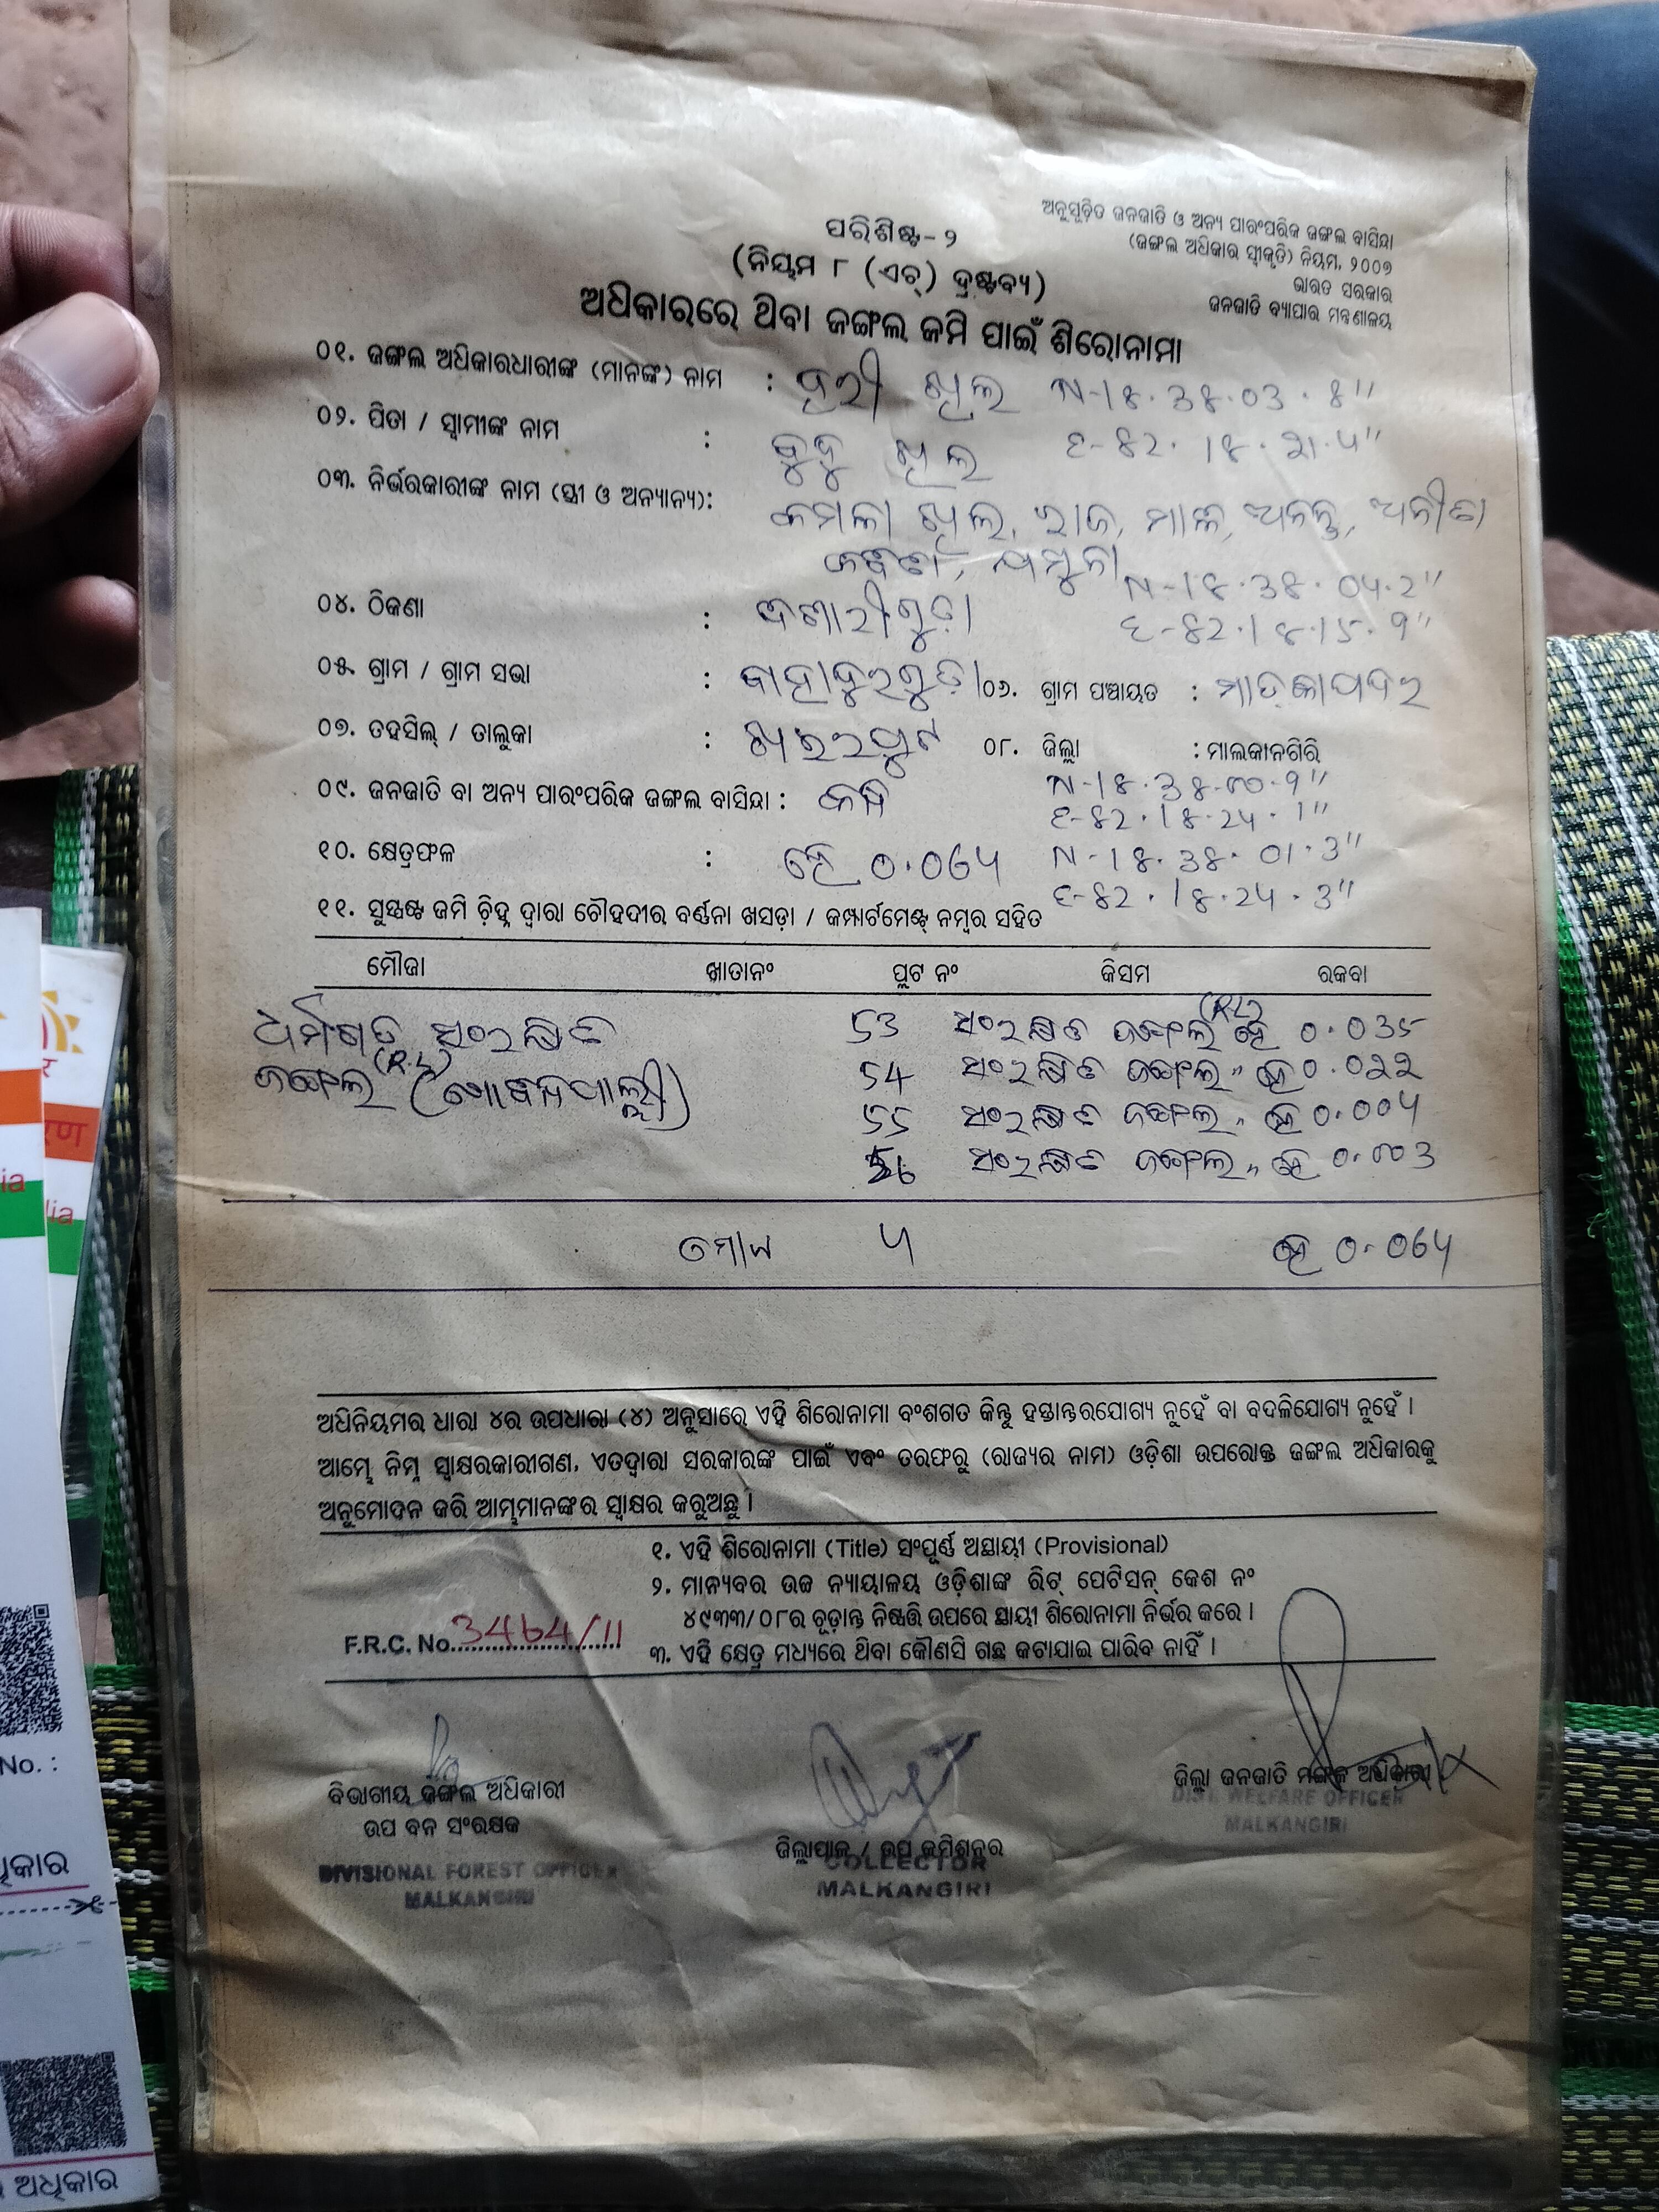 ଅନୁସୂଚିତ ଜନଜାତି ଓ ଅନ୍ୟ ପାରଂପରିକ ଜଙ୍ଗଲ ବାସିନ୍ଦା
(ଜଙ୍ଗଲ ଅଧିକାର ସ୍ୱୀକୃତି) ନିୟମ, ୨୦୦୭
ଭାରତ ସରକାର
ଜନଜାତି ବ୍ୟାପାର ମନ୍ତ୍ରଣାଳୟ
ପରିଶିଷ୍ଟ-୨
(ନିୟମ ୮ (ଏଚ୍) ଦ୍ରଷ୍ଟବ୍ୟ)
ଅଧିକାରରେ ଥିବା ଜଙ୍ଗଲ ଜମି ପାଇଁ ଶିରୋନାମା
୦୧. ଜଙ୍ଗଲ ଅଧିକାରଧାରୀଙ୍କ (ମାନଙ୍କ) ନାମ : ହରୀ ଖିଲ N-18.38.03.8"
୦୨. ପିତା / ସ୍ୱାମୀଙ୍କ ନାମ : ଖିଲ E-82.18.21.5"
୦୩. ନିର୍ଭରକାରୀଙ୍କ ନାମ (ସ୍ତ୍ରୀ ଓ ଅନ୍ୟାନ୍ୟ): କମଳା ଖିଲ, ରାଜ, ଅନନ୍ତ, ଅନୀତା
ଯମୁନା
N-18.38.05.2"
୦୪. ଠିକଣା :
E-82.18.15.9"
୦୫. ଗ୍ରାମ / ଗ୍ରାମ ସଭା : ବାହାଦୁରଗୁଡ଼ା ୦୬. ଗ୍ରାମ ପଞ୍ଚାୟତ :
୦୭. ତହସିଲ୍ / ତାଲୁକା : ଖଇରପୁଟ ୦୮. ଜିଲ୍ଲା : ମାଲକାନଗିରି
N-18.38.00.9"
୦୯. ଜନଜାତି ବା ଅନ୍ୟ ପାରଂପରିକ ଜଙ୍ଗଲ ବାସିନ୍ଦା : E-82.18.25.1"
୧୦. କ୍ଷେତ୍ରଫଳ : ହେ 0.065 N-18.38.01.3"
E-82.18.25.3"
୧୧. ସୁସ୍ପଷ୍ଟ ଜମି ଚିହ୍ନ ଦ୍ୱାରା ଚୌହଦୀର ବର୍ଣ୍ଣନା ଖସଡ଼ା / କମ୍ପାର୍ଟମେଣ୍ଟ୍ ନମ୍ବର ସହିତ
ମୌଜା ଖାତାନଂ ପ୍ଲଟ ନଂ କିସମ ରକବା
ସଂରକ୍ଷିତ 53 ସଂରକ୍ଷିତ ଜଙ୍ଗଲ ହେ 0.035
ଜଙ୍ଗଲ 54 ସଂରକ୍ଷିତ ଜଙ୍ଗଲ " ହେ 0.022
55 ସଂରକ୍ଷିତ ଜଙ୍ଗଲ " ହେ 0.005
56 ସଂରକ୍ଷିତ ଜଙ୍ଗଲ " ହେ 0.003
ମୋଟ ହେ 0.065
ଅଧିନିୟମର ଧାରା ୪ର ଉପଧାରା (୪) ଅନୁସାରେ ଏହି ଶିରୋନାମା ବଂଶଗତ କିନ୍ତୁ ହସ୍ତାନ୍ତରଯୋଗ୍ୟ ନୁହେଁ ବା ବଦଳିଯୋଗ୍ୟ ନୁହେଁ ।
ଆମ୍ଭେ ନିମ୍ନ ସ୍ୱାକ୍ଷରକାରୀଗଣ, ଏତଦ୍ୱାରା ସରକାରଙ୍କ ପାଇଁ ଏବଂ ତରଫରୁ (ରାଜ୍ୟର ନାମ) ଓଡ଼ିଶା ଉପରୋକ୍ତ ଜଙ୍ଗଲ ଅଧିକାରକୁ
ଅନୁମୋଦନ କରି ଆମ୍ଭମାନଙ୍କର ସ୍ୱାକ୍ଷର କରୁଅଛୁ ।
୧. ଏହି ଶିରୋନାମା (Title) ସଂପୂର୍ଣ୍ଣ ଅସ୍ଥାୟୀ (Provisional)
୨. ମାନ୍ୟବର ଉଚ୍ଚ ନ୍ୟାୟାଳୟ ଓଡ଼ିଶାଙ୍କ ରିଟ୍ ପେଟିସନ୍ କେଶ ନଂ
୪୯୩୩/୦୮ର ଚୂଡ଼ାନ୍ତ ନିଷ୍ପତ୍ତି ଉପରେ ସ୍ଥାୟୀ ଶିରୋନାମା ନିର୍ଭର କରେ ।
F.R.C. No. 3464/11
୩. ଏହି କ୍ଷେତ୍ର ମଧ୍ୟରେ ଥିବା କୌଣସି ଗଛ କଟାଯାଇ ପାରିବ ନାହିଁ ।
ବିଭାଗୀୟ ଜଙ୍ଗଲ ଅଧିକାରୀ
ଉପ ବନ ସଂରକ୍ଷକ
DIVISIONAL FOREST OFFICER
MALKANGIRI
ଜିଲ୍ଲାପାଳ / ଉପ କମିଶନର
COLLECTOR
MALKANGIRI
ଜିଲ୍ଲା ଜନଜାତି ମଙ୍ଗଳ ଅଧିକାରୀ
DIST. WELFARE OFFICER
MALKANGIRI
No. :
ଅଧିକାର